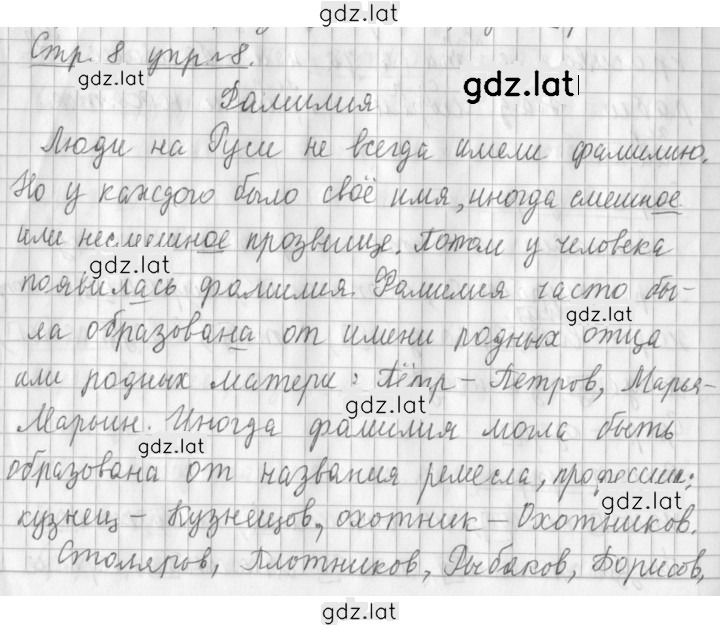 gdz.lat
Стр. 8 упр. 8.
gdz.lat
gdz.lat
Фамилия
Люди на Руси не всегда имели фамилию.
Но у каждого было своё имя, иногда смешное
или несмешное прозвище. Потом у человека
gdz.lat
появилась фамилия. Фамилия часто бы-
gdz.lat
ла образована от имени родных отца
или родных матери: Пётр – Петров, Марья-
gdz.lat
Марьин. Иногда фамилия могла быть
gdz.lat
образована от названия ремесла, профессии:
gdz.lat
кузнец – Кузнецов, охотник – Охотников.
Столяров, Плотников, Рыбаков, Борисов,
gdz.lat